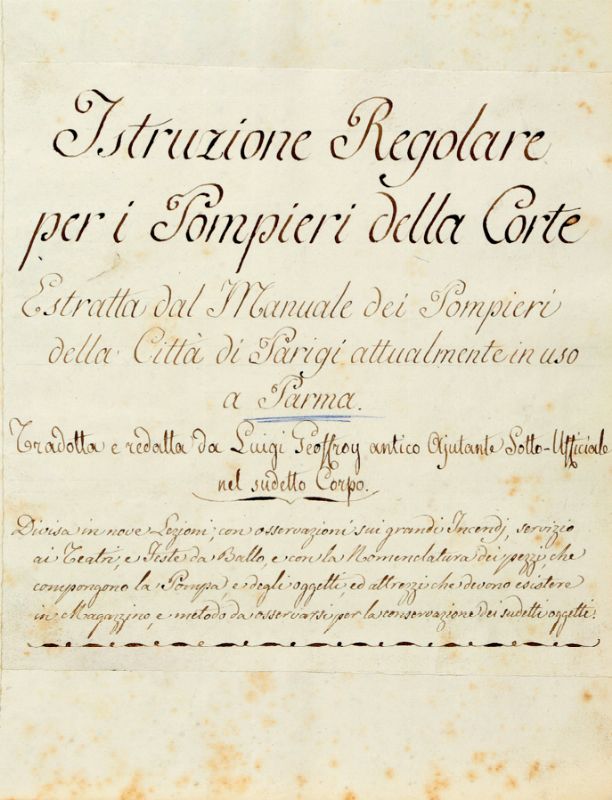 Istruzione Regolare
per i Pompieri della Corte
Estratta dal Manuale dei Pompieri
della Città di Parigi attualmente in uso
a Parma.
Tradotta e redatta da Luigi Geoffroy antico Ajutante Sotto-Ufficiale
nel sudetto Corpo.
Divisa in nove Lezioni; con osservazioni sui grandi Incendj, servizio
ai Teatri, e Feste da Ballo, e con la Nomenclatura dei pezzi, che
compongono la Pompa, e degli oggetti, ed attrezzi che devono esistere
in Magazzino, e metodo da osservarsi per la conservazione dei sudetti oggetti.